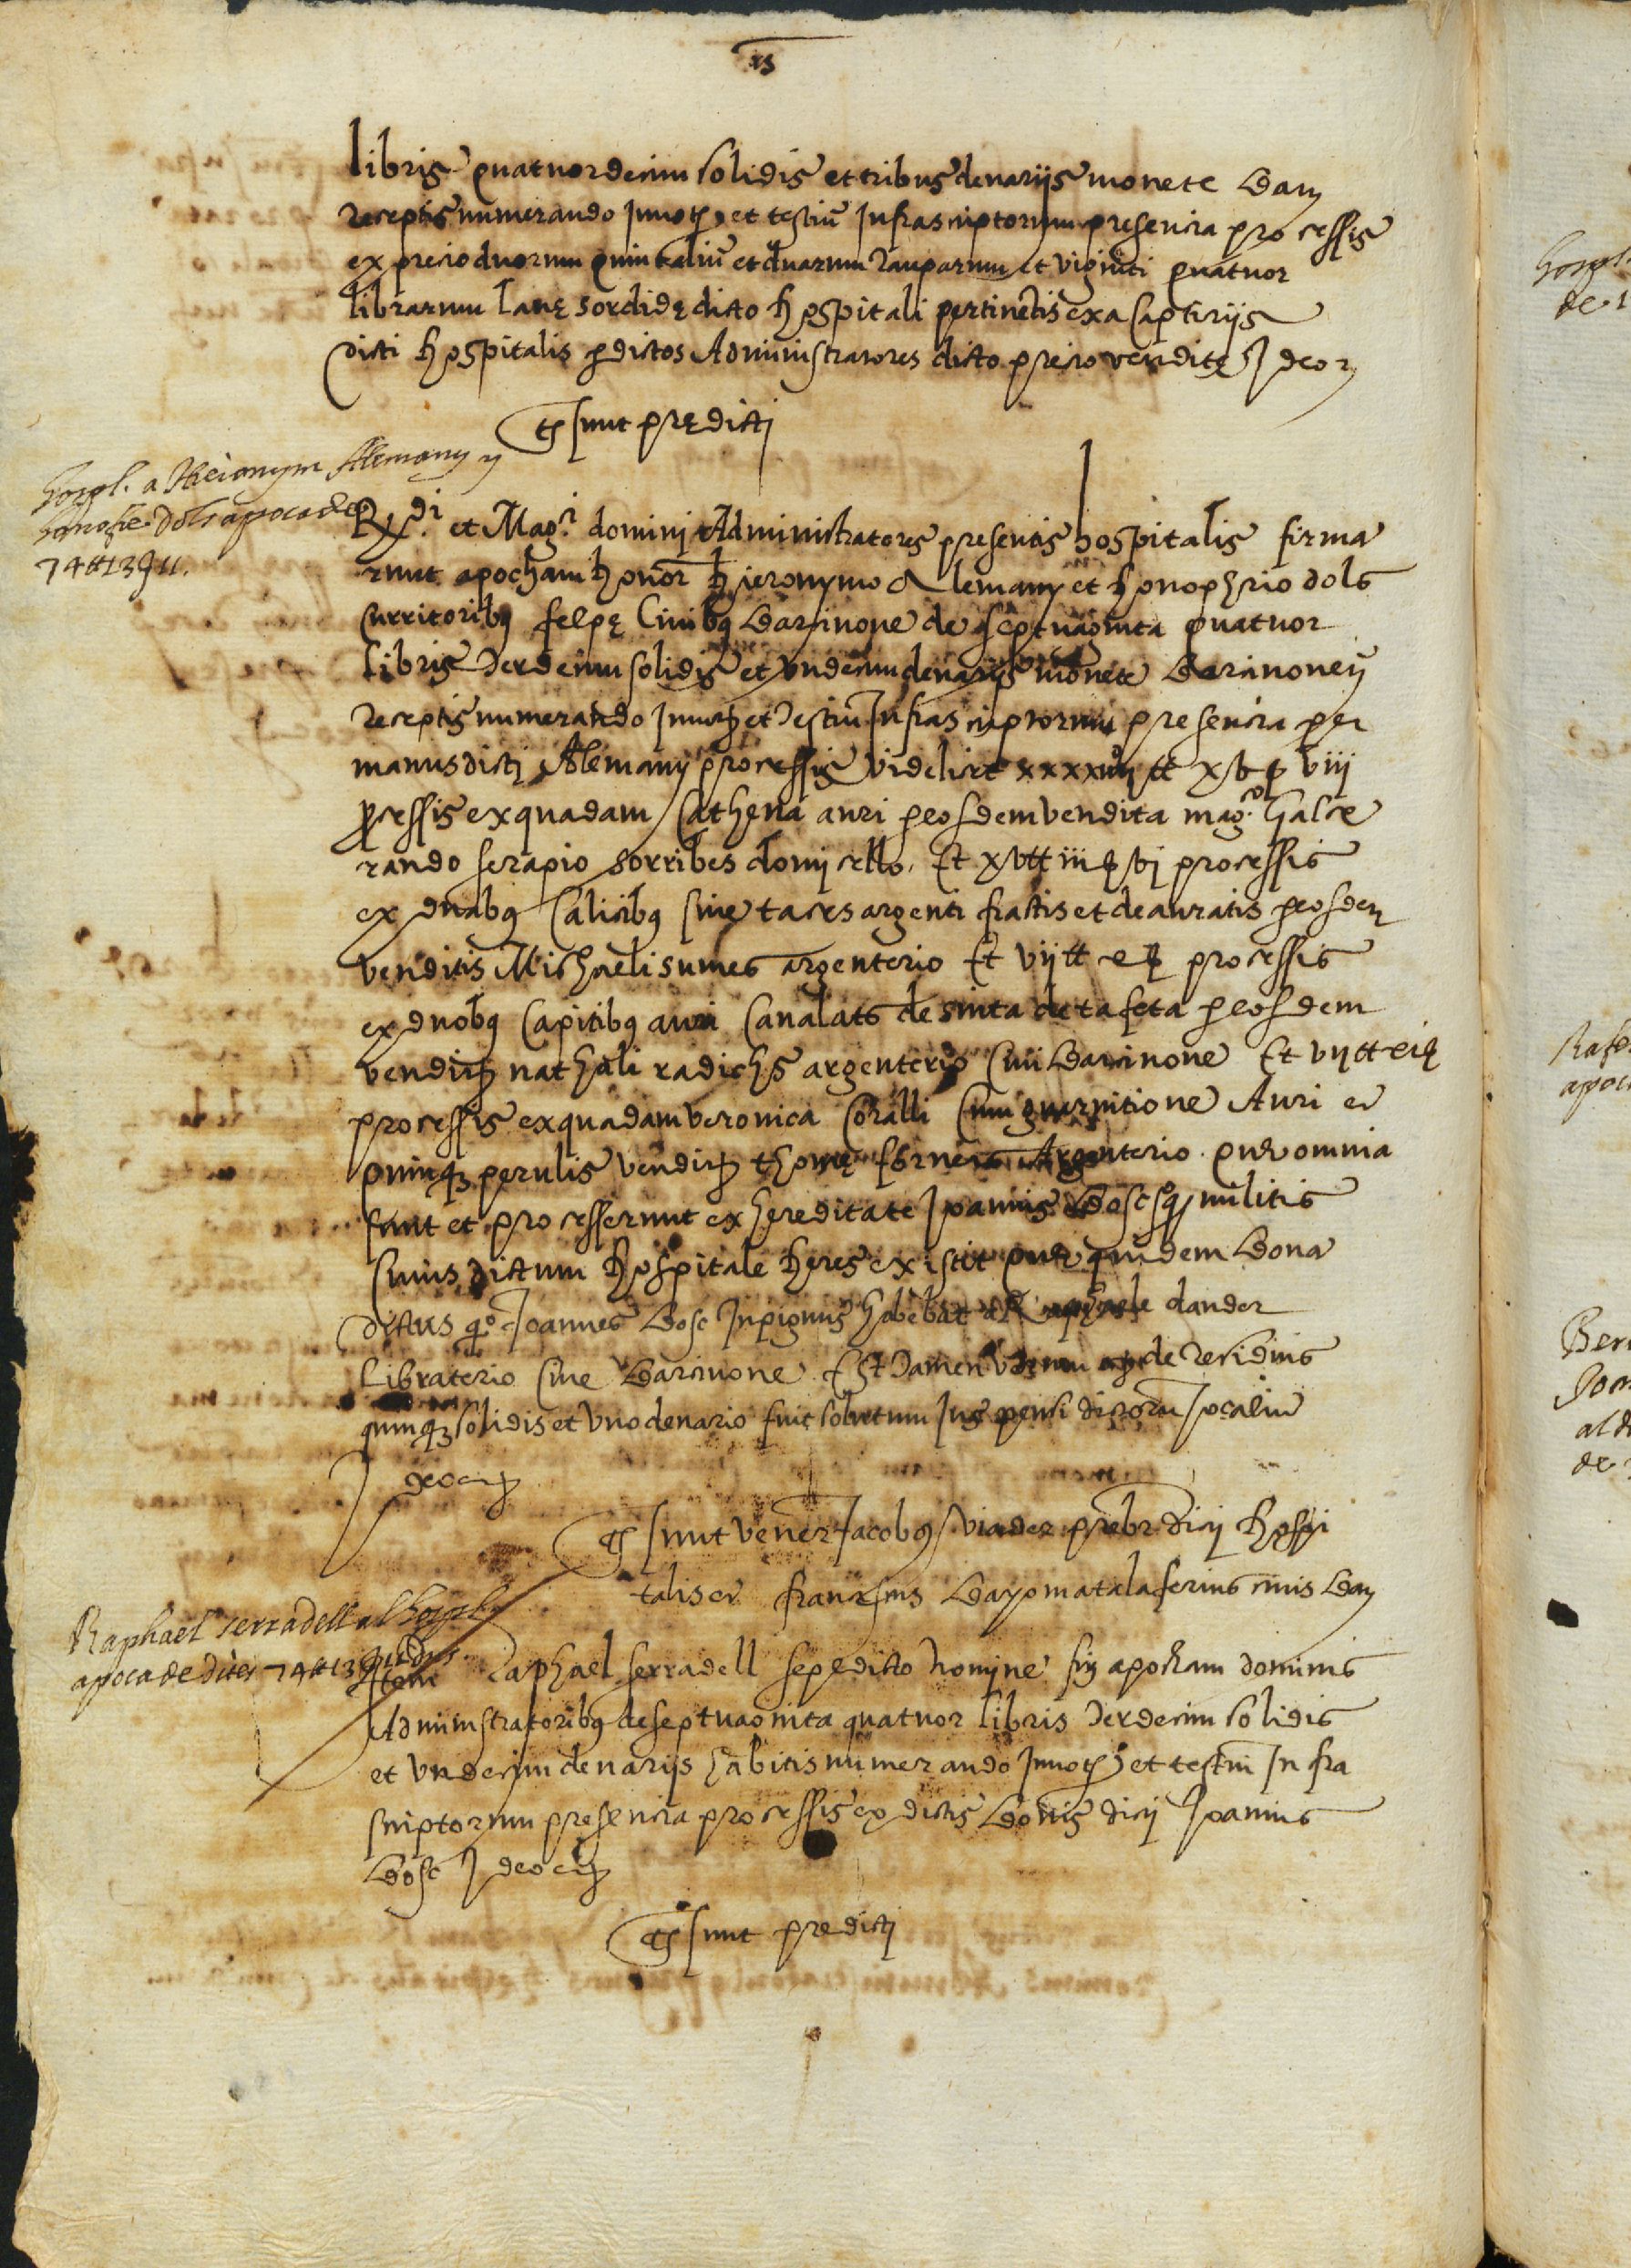 libris quatuordecim solidis et tribus denariis monete Bar
receptis numerando in not et testiu infrascriptorum presencia processis
ex precio duorum quintaliu et duarum rauparum et viginti quatuor
librarum lanę sordidę dicto hospitali pertinetis exa captiriis
dicti hospitalis p dictos Administratores dicto precio venditę Ideo
ts sunt prędicti
Hospl. a Hieronym Alemany y
honofre dols apoca de
74 ℔ 13 ß 11.
Rdi. et Magci domini Administratores presentis hospitalis firma
runt apocham honor hieronymo Alemany et honophrio dols
curritoribq felpę Civibq Barcinone de septuaginta quatuor
libris terdecim solidis et undecim denariis monete Barcinoney
receptis numerando in not et testiu infrascriptorum presencia per
manus dicti Alemany processis videlicet xxxxiiij ℔ xv ß viij
pcessis ex quadam cathena auri p eosdem vendita mag.co Galce
rando serapio sorribes domicello. Et xv ℔ iij ß vj processis
ex duabq calicibq sive taces argenti fractis et deauratis p eosdem
venditis Michaeli sumes argenterio Et vij ℔ e ß processis
ex duobq capitibq auri canalats de sinta de tafeta p eosdem
venditis nathali radichs argenterio civi Barcinone Et vij ℔ eiß
processis ex quadam veronica coralli cum guarnitione Auri et
quinqz perulis venditis thome forner Argenterio. que omnia
sunt et processerunt ex hereditate Joannis Bosc qo militis
cuius dictum hospitale heres existit que quidem Bona
dictus qo Joannes Bosc in pignus habebat a Raphaele dander
Libraterio cive Barcinone. Est tamen verum de residuis
quinqz solidis et uno denario fuit solutum Jus pensi dictoru Jocaliu
Ideo etz
ts sunt vener Jacobq viader prebr dicti hospi
talis et franciscus Bayo matalaferius civis Bar
Raphael serradell al hospl
apoca de dites 74 ℔ 13 ß 11
Item Raphael serradell sepedicto nomine fir apocham dominis
Administratoribq de septuaginta quatuor libris terdecim solidis
et undecim denariis habitis numerando in not et testiu Infra
scriptorum presencia processis ex dictis Bonis dicti Joannis
Bosc Ideo etz
ts sunt predicti